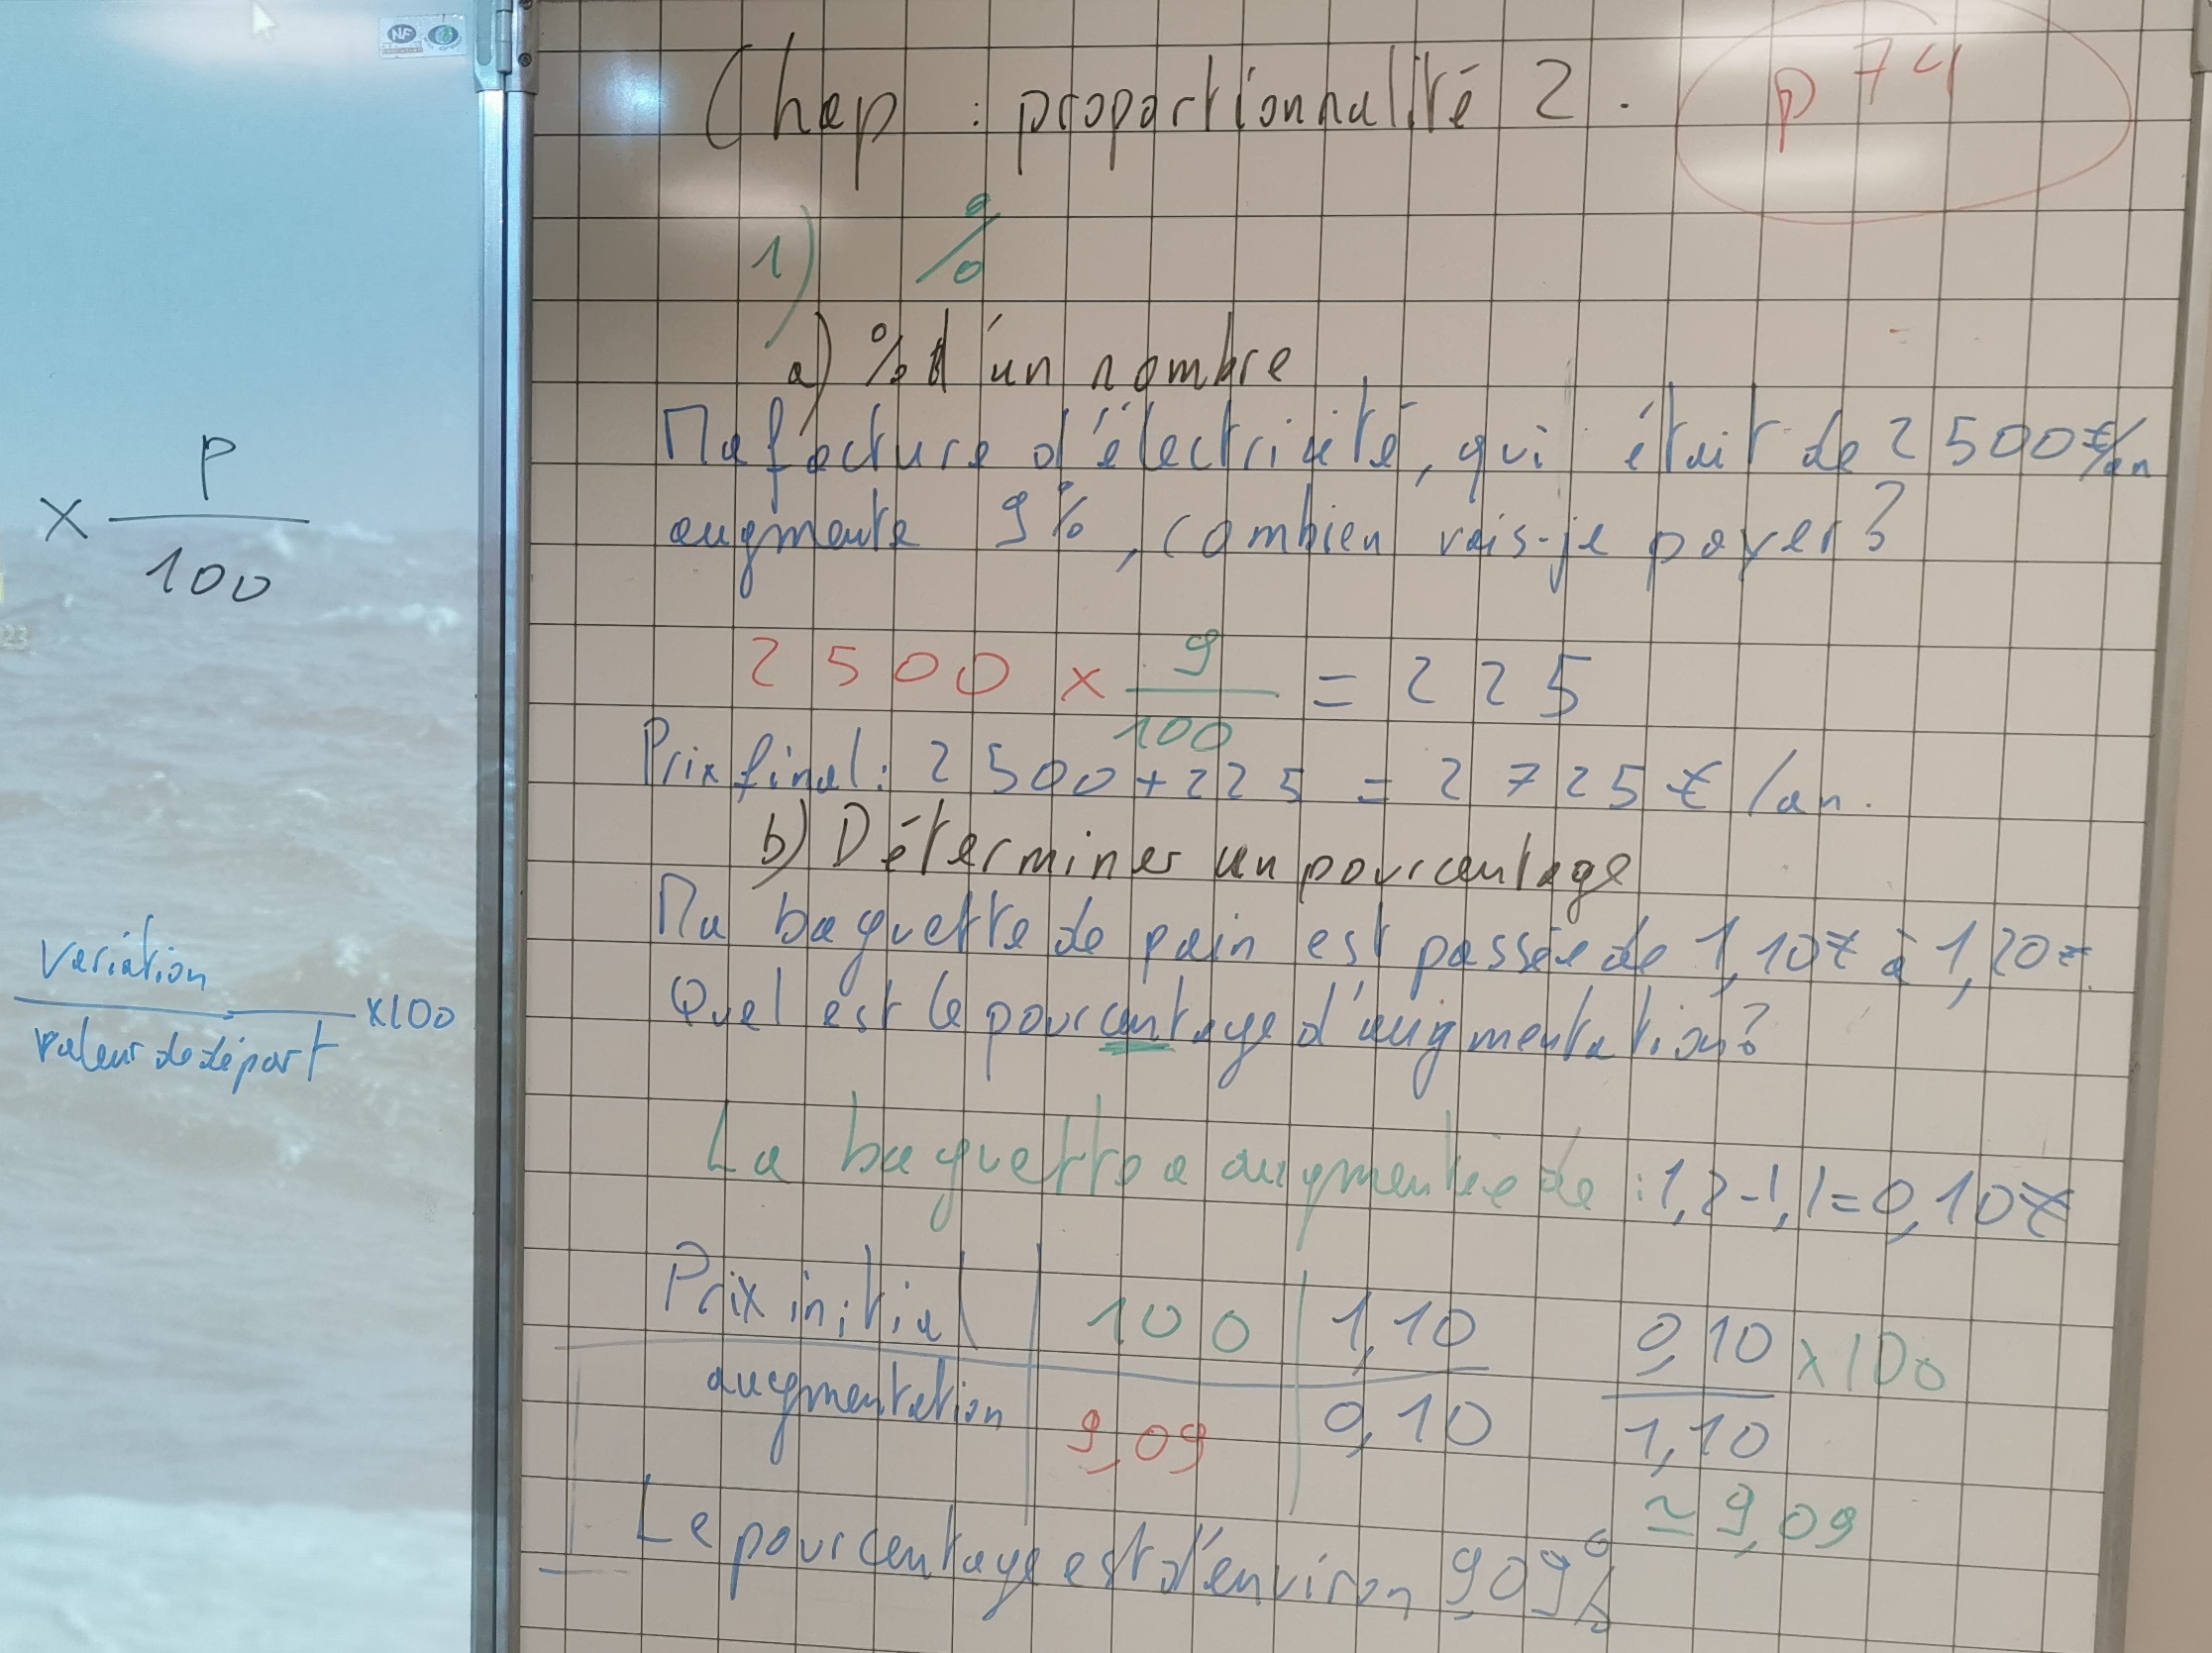 Chap : proportionnalité 2. p 74
1) %
a) % d'un nombre
Ma facture d'électricité, qui était de 2 500 €/an
augmente 9%, combien vais-je payer?
× p/100
2 500 × 9/100 = 225
Prix final : 2 500 + 225 = 2 725 € /an.
b) Déterminer un pourcentage
Ma baguette de pain est passée de 1,10€ à 1,20€.
Quel est le pourcentage d'augmentation?
variation
valeur de départ
×100
La baguette a augmentée de : 1,2 - 1,1 = 0,10€
Prix initial 100 1,10
augmentation 9,09 0,10
0,10/1,10 ×100
≃ 9,09
Le pourcentage est d'environ 9,09%
NF